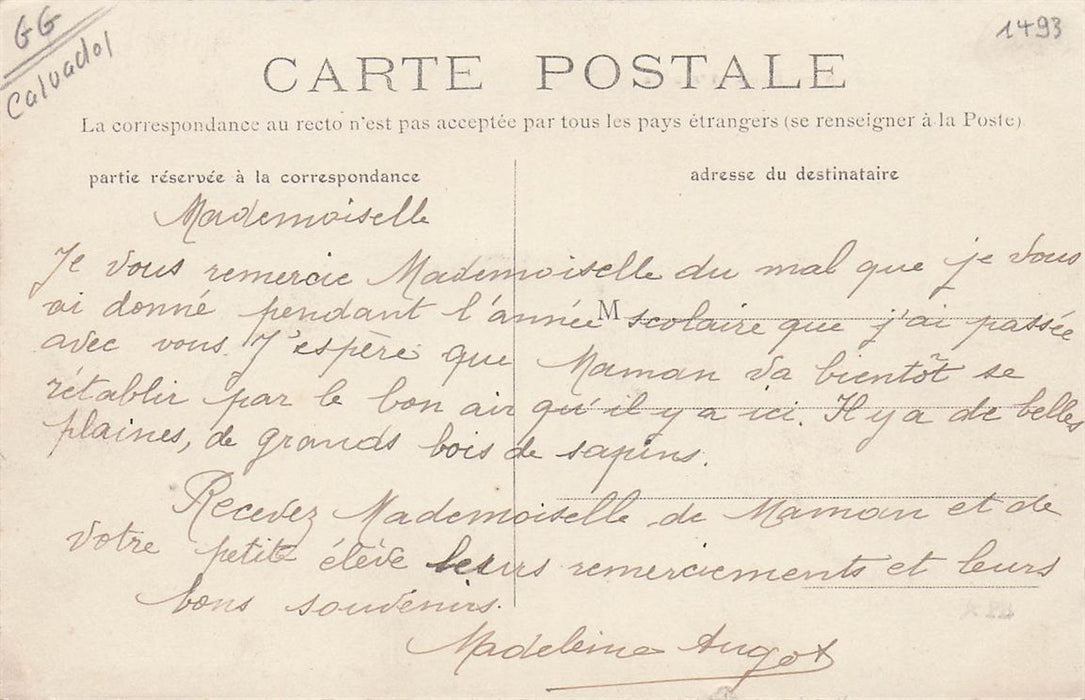 GG
Calvados
1493
CARTE POSTALE
La correspondance au recto n'est pas acceptée par tous les pays étrangers (se renseigner à la Poste)
partie réservée à la correspondance
adresse du destinataire
Mademoiselle
Je vous remercie Mademoiselle du mal que je vous
ai donné pendant l'année scolaire que j'ai passée
M
avec vous. J'espère que Maman va bientôt se
rétablir par le bon air qu'il y a ici. Il y a de belles
plaines, de grands bois de sapins.
Recevez Mademoiselle de Maman et de
votre petite élève leurs remerciements et leurs
bons souvenirs.
Madeleine Angot